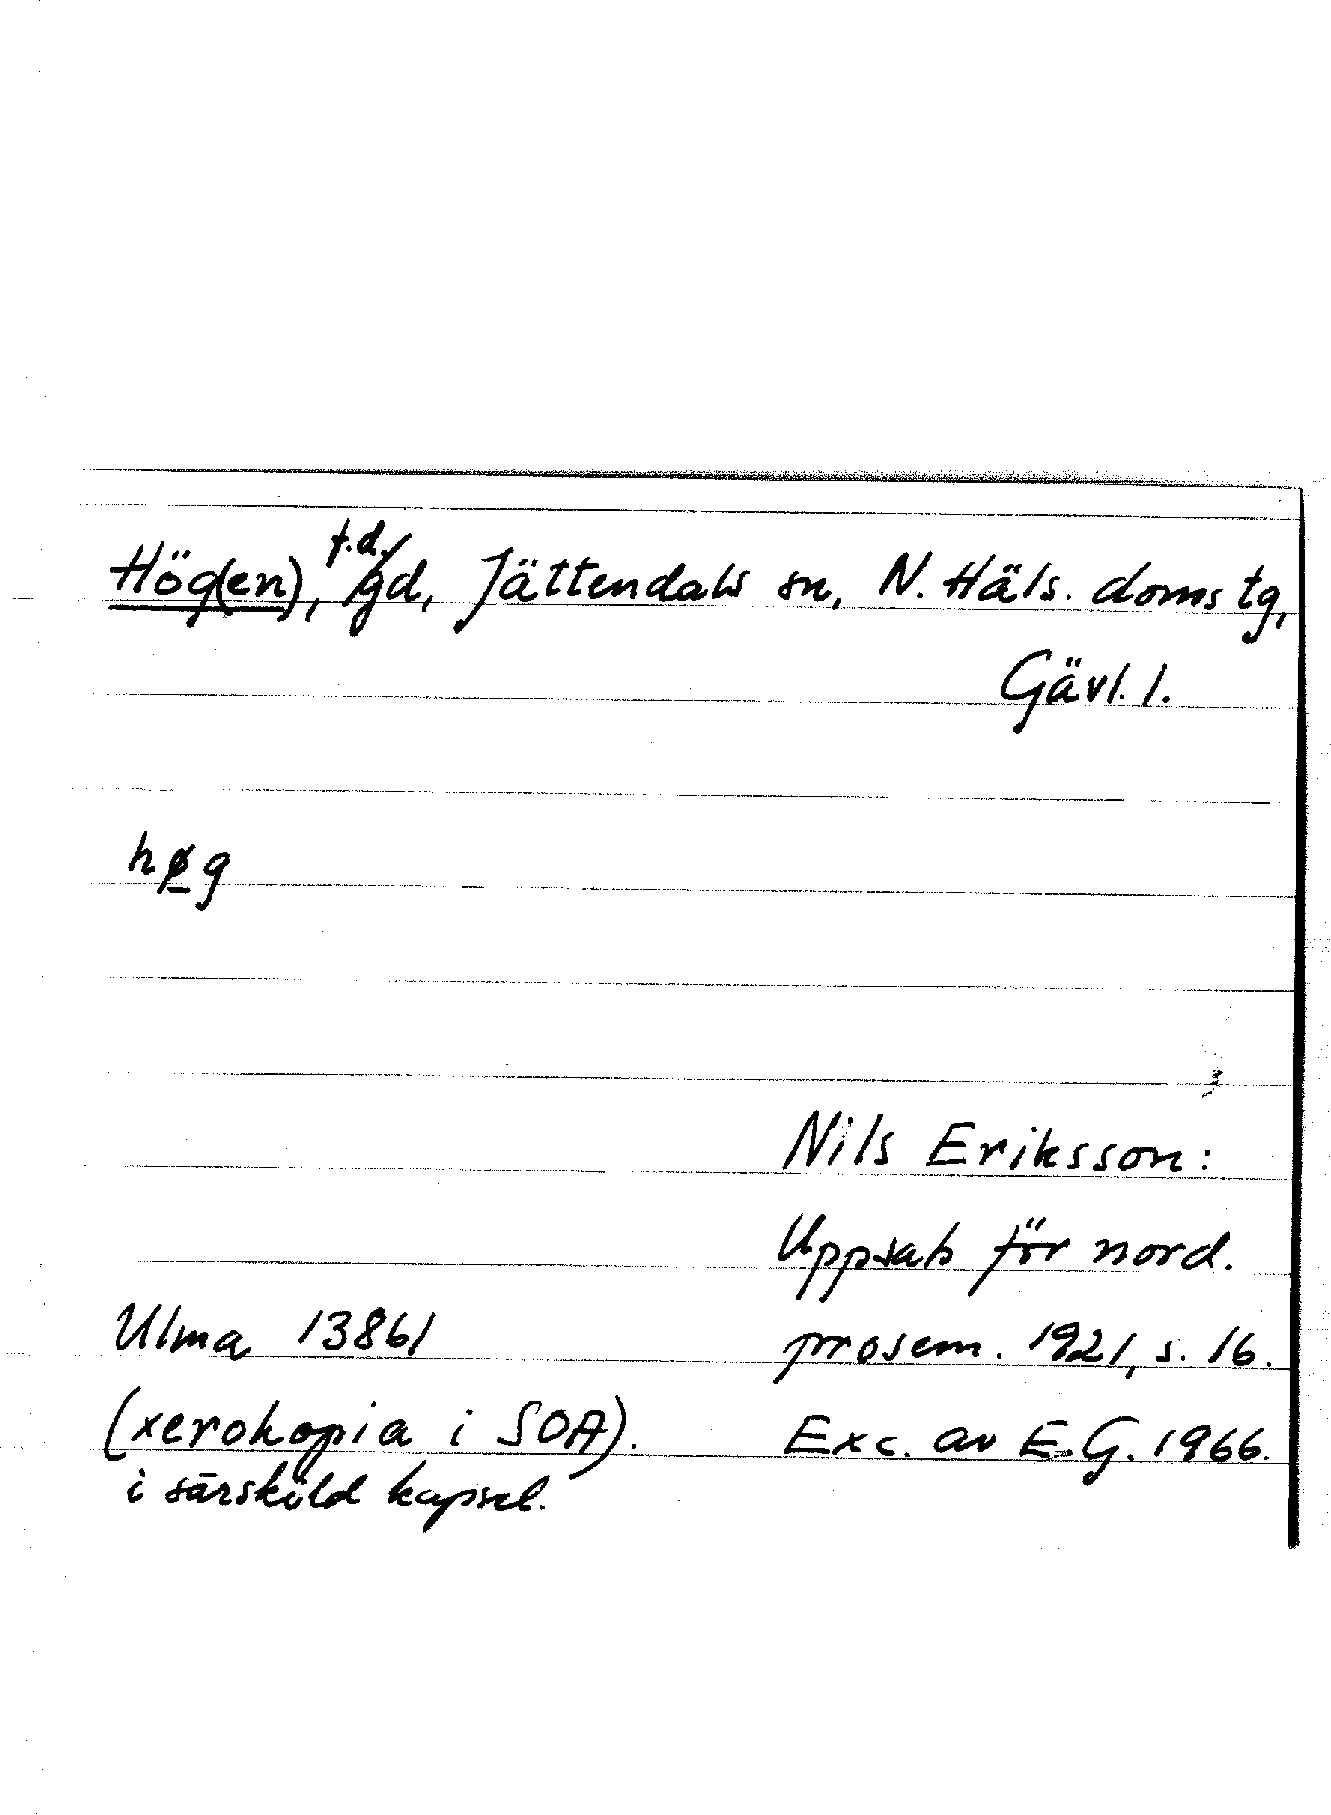 Hög(en), f.d. gd, Jättendals sn, N. Häls. doms tg,
Gävl. l.
hø̲g
Nils Eriksson:
Uppsats för nord.
Ulma 13861 prosem. 1921, s. 16.
(xerokopia i SOA). Exc. av E.G. 1966.
i särskild kapsel.